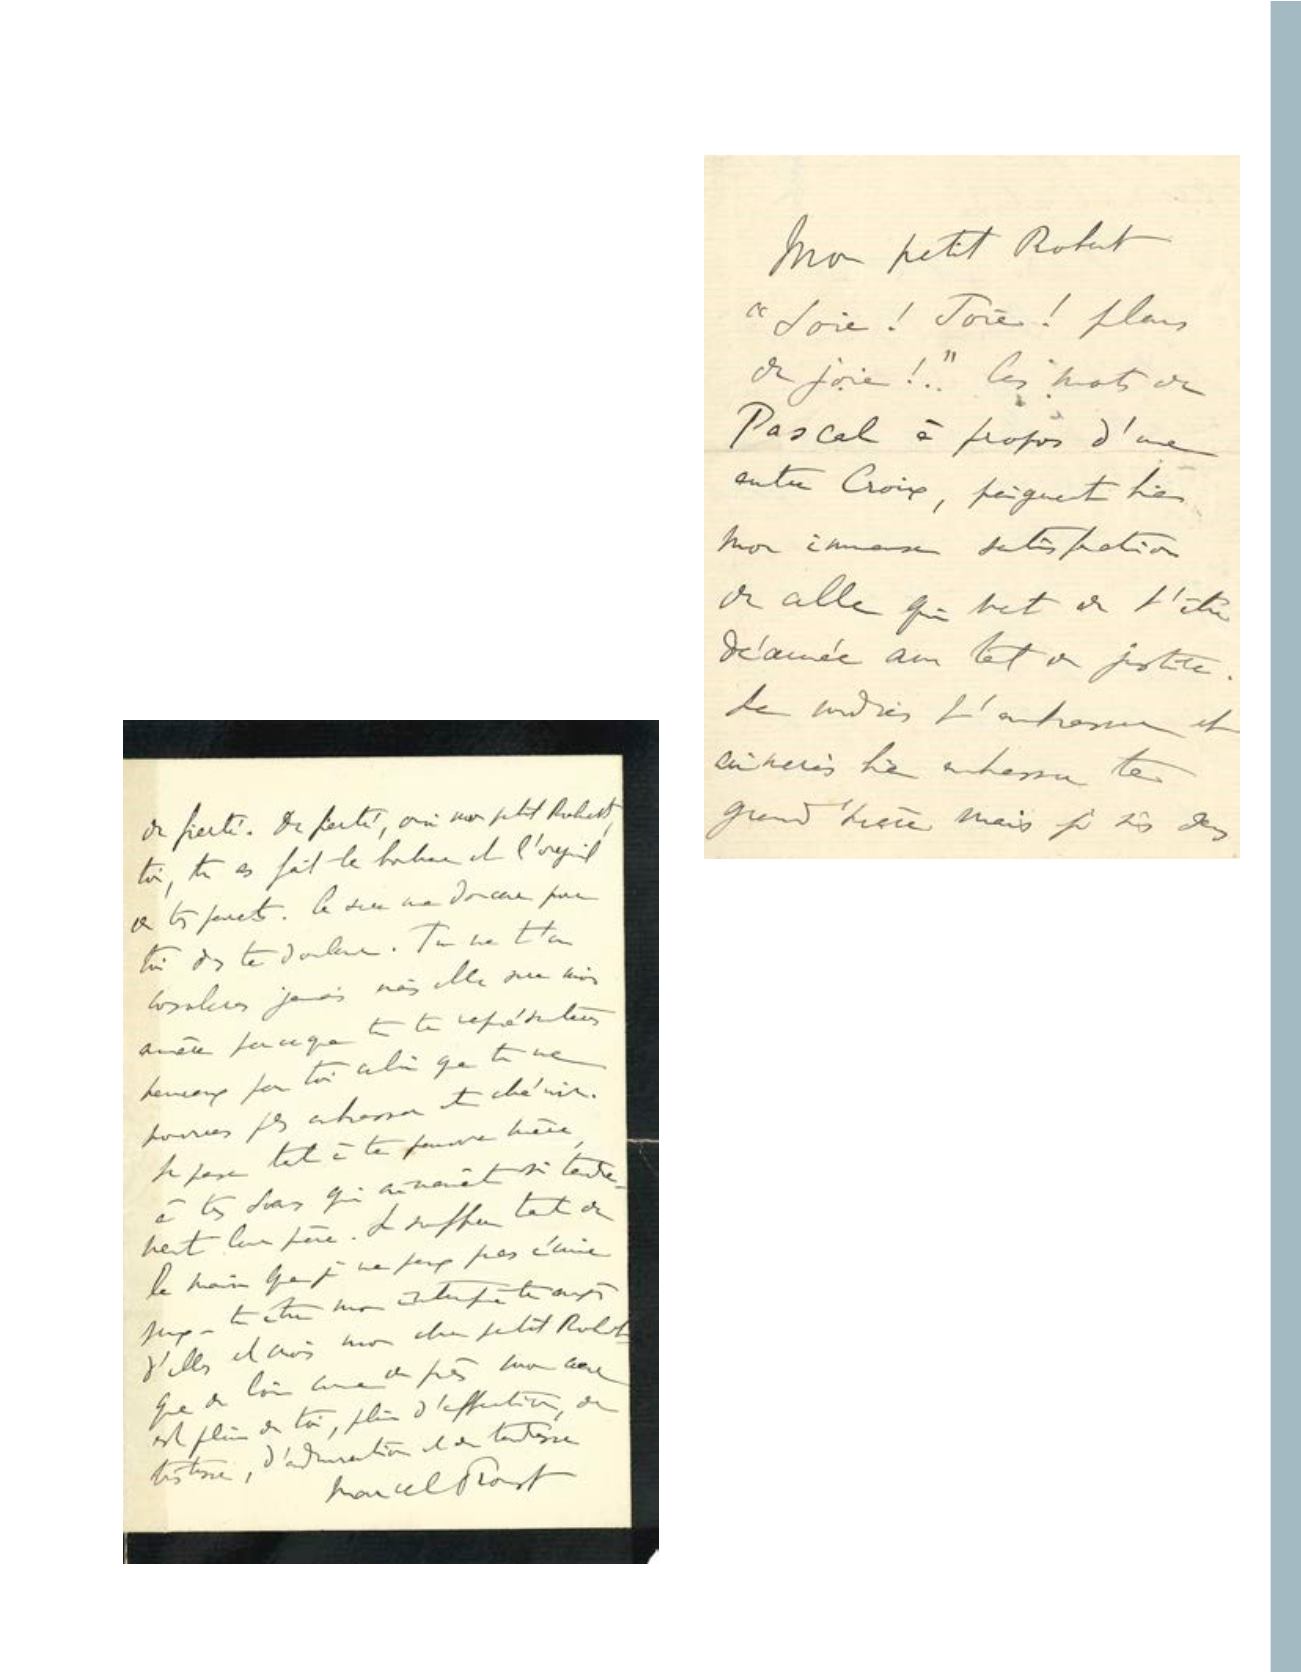 Mon petit Robert
"Joie ! Joie ! pleurs
de joie !.." Ces mots de
Pascal à propos d'une
autre Croix, peignent bien
mon immense satisfaction
de celle qui vient de t'être
décernée avec tant de justice.
Je voudrais t'embrasser et
aimerais bien embrasser ta
grand'mère mais je suis dans
de fierté. De fierté, oui mon petit Robert,
toi, tu as fait le bonheur et l'orgueil
de tes parents. Ce sera une douceur pour
toi dans ta douleur. Tu ne t'en
consoleras jamais mais elle sera moins
amère parce que tu te représenteras
heureux par toi celui que tu ne
pourras plus embrasser et chérir.
Je pense tant à ta pauvre mère,
à tes sœurs qui aimaient si tendre-
ment leur père. Je souffre tant de
la main que je ne peux pas écrire
peux-tu être mon interprète auprès
d'elles et crois mon cher petit Robert
que de loin comme de près mon cœur
est plein de toi, plein d'affection, de
tristesse, d'admiration et de tendresse
Marcel Proust